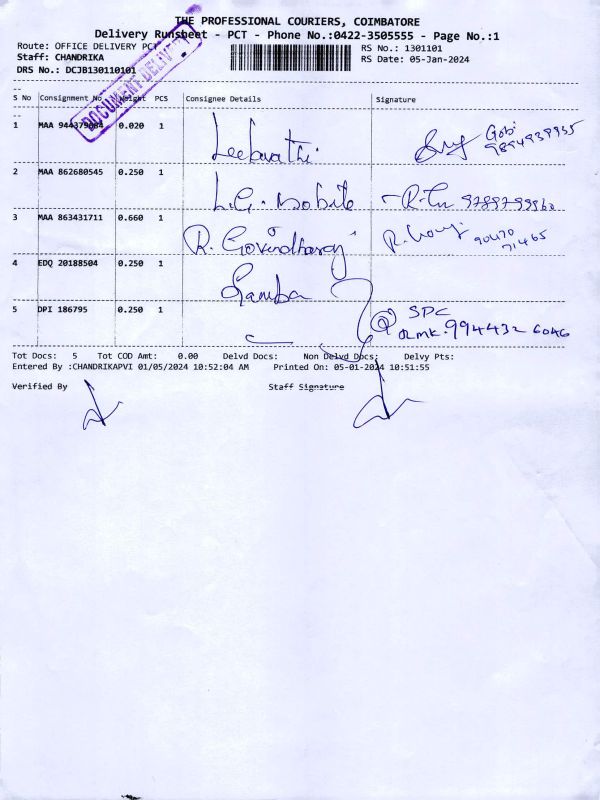 THE PROFESSIONAL COURIERS, COIMBATORE
Delivery Runsheet - PCT - Phone No.:0422-3505555 - Page No.:1
Route: OFFICE DELIVERY PCT
RS No.: 1301101
Staff: CHANDRIKA
RS Date: 05-Jan-2024
DRS No.: DCJB130110101
DOCUMENT DELIVERY
S No Consignment No Weight PCS Consignee Details Signature
1 MAA 0.020 1 Gobi
2 MAA 862680545 0.250 1 L.G. Mobile
3 MAA 863431711 0.660 1 R. Govindharaj
90470
71465
4 EDQ 20188504 0.250 1
5 DPI 186795 0.250 1 SPC
994432 6046
Tot Docs: 5 Tot COD Amt: 0.00 Delvd Docs: Non Delvd Docs: Delvy Pts:
Entered By :CHANDRIKAPVI 01/05/2024 10:52:04 AM Printed On: 05-01-2024 10:51:55
Verified By Staff Signature